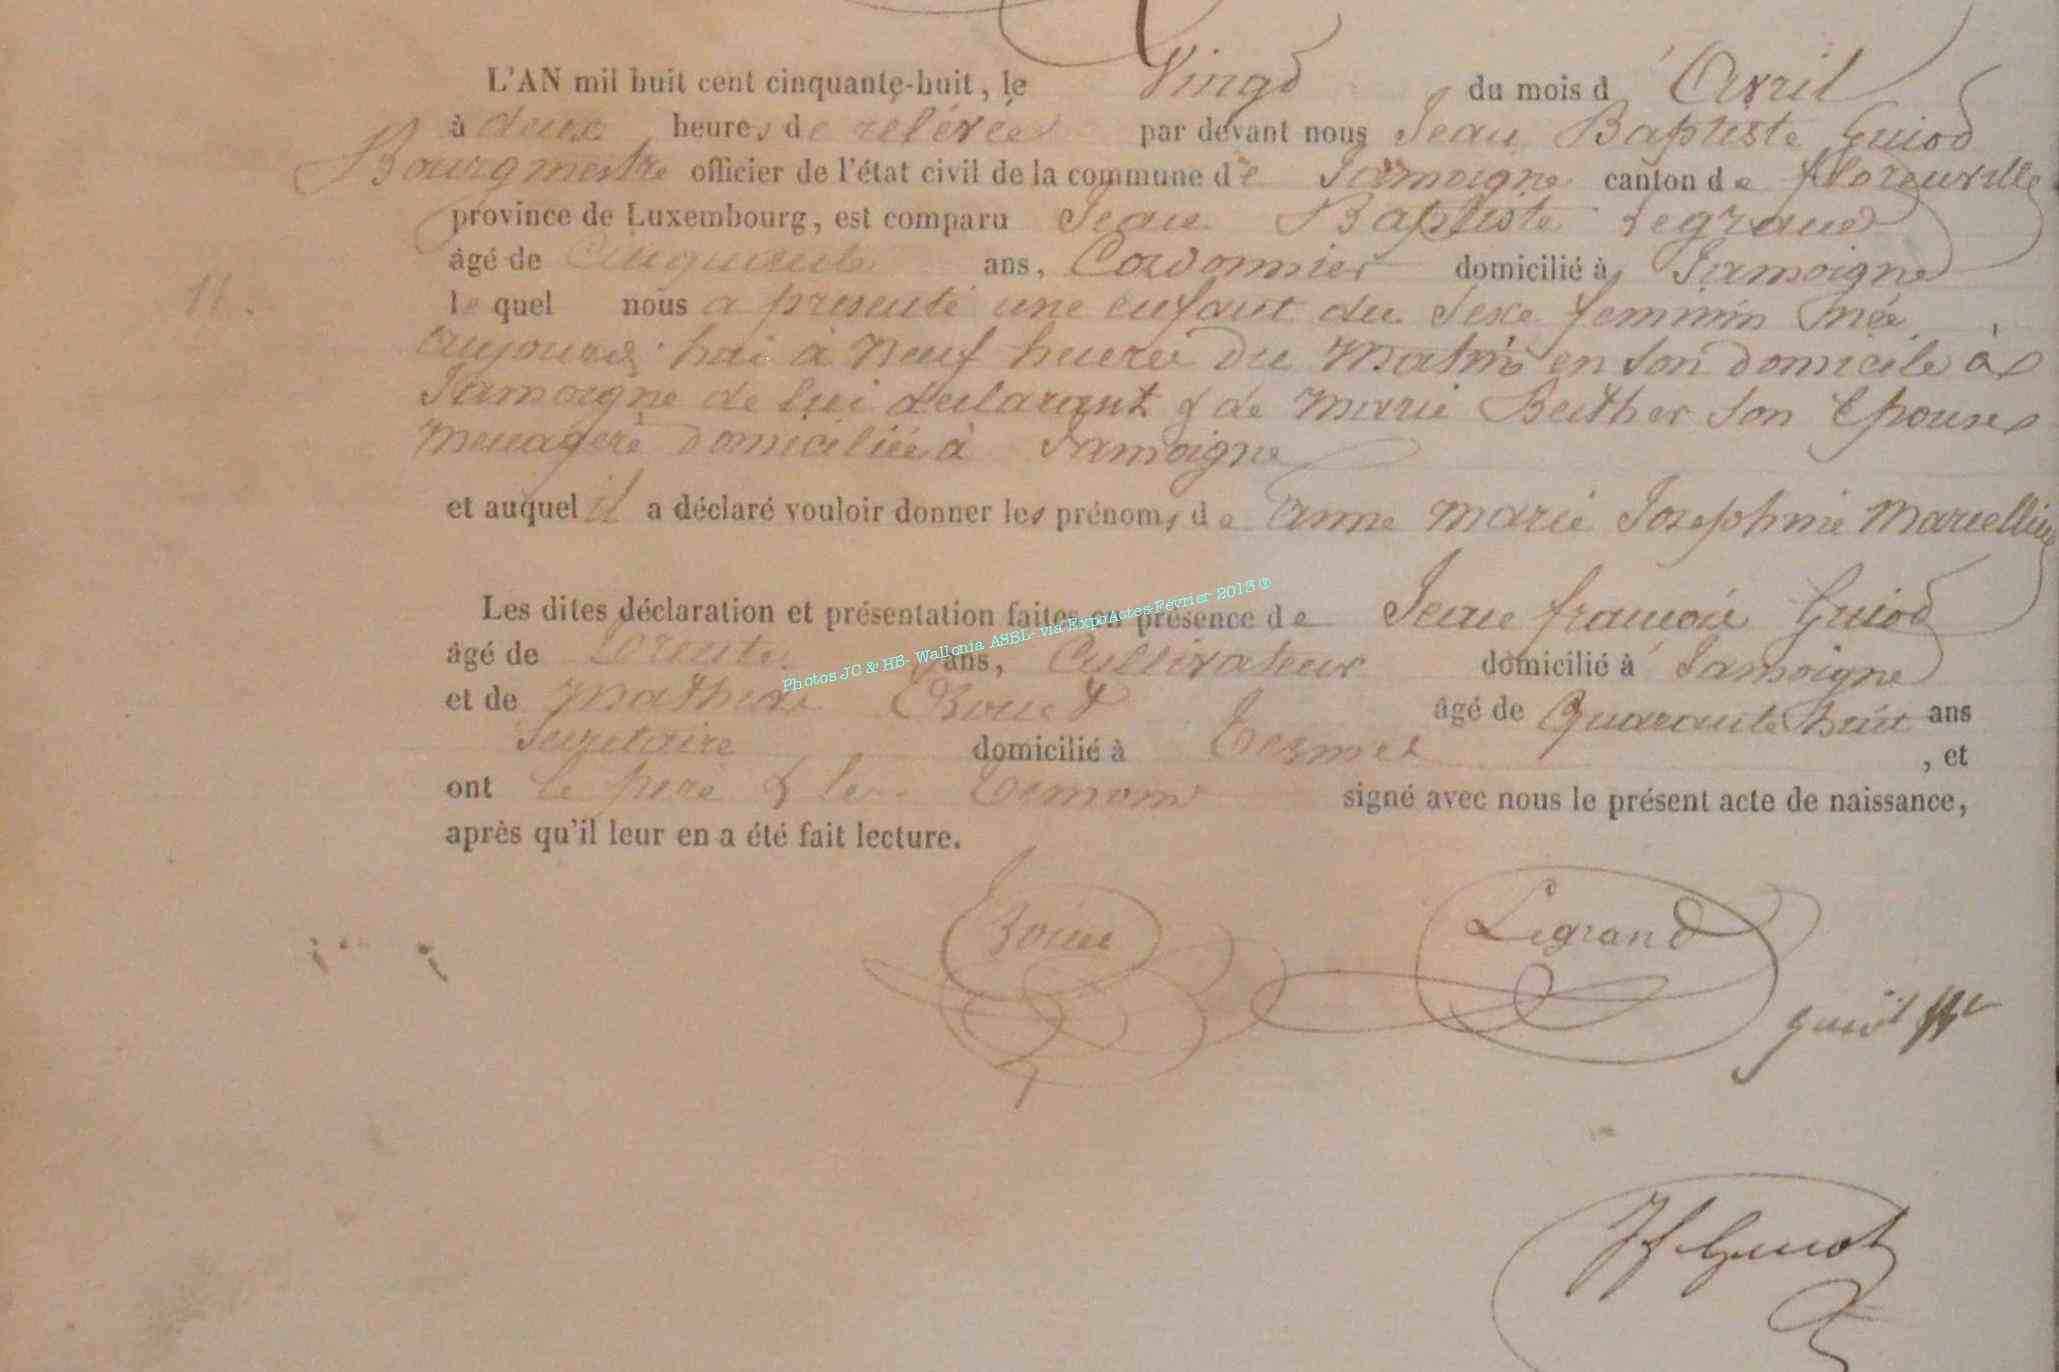 L'AN mil huit cent cinquante-huit, le Vingt du mois d'Avril
à deux heures de rélévée par devant nous Jean Baptiste Guiot
Bourgmestre officier de l'état civil de la commune de Jamoigne canton de florenville
province de Luxembourg, est comparu Jean Baptiste Legrand
âgé de Cinquante ans, Cordonnier domicilié à Jamoigne
11. le quel nous a présenté une enfant du Sexe feminin née
aujourd'hui à Neuf heures Du Matin en son Domicile à
Jamoigne de lui declarant & de Marie Son Epouse
Menagere Domiciliée à Jamoigne
et auquel il a déclaré vouloir donner les prénoms de Anne Marie Josephine Marcelline
Les dites déclaration et présentation faites en présence de Jean françois Guiot
âgé de trente ans, Cultivateur domicilié à Jamoigne
et de Mathieu Bouet âgé de Quarante huit ans
Secretaire domicilié à Termes, et
ont le pere & les temoins signé avec nous le présent acte de naissance,
après qu'il leur en a été fait lecture.
Photos JC & HB- Wallonia ASBL- via ExpoActes-Février 2013 ®
Bouet Legrand
Guiot
Jf Guiot